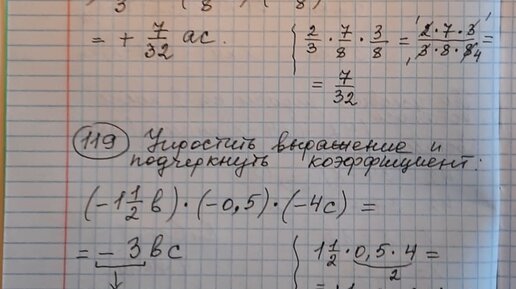 3 (8 / (8
= + 7/32 ac. { 2/3 · 7/8 · 3/8 = 2·7·3/3·8·8 4 =
= 7/32
119 Упростить выражение и
подчеркнуть коэффициент:
(-1 1/2 b) · (-0,5) · (-4c) =
= -3bc { 1 1/2 · 0,5 · 4 =
2